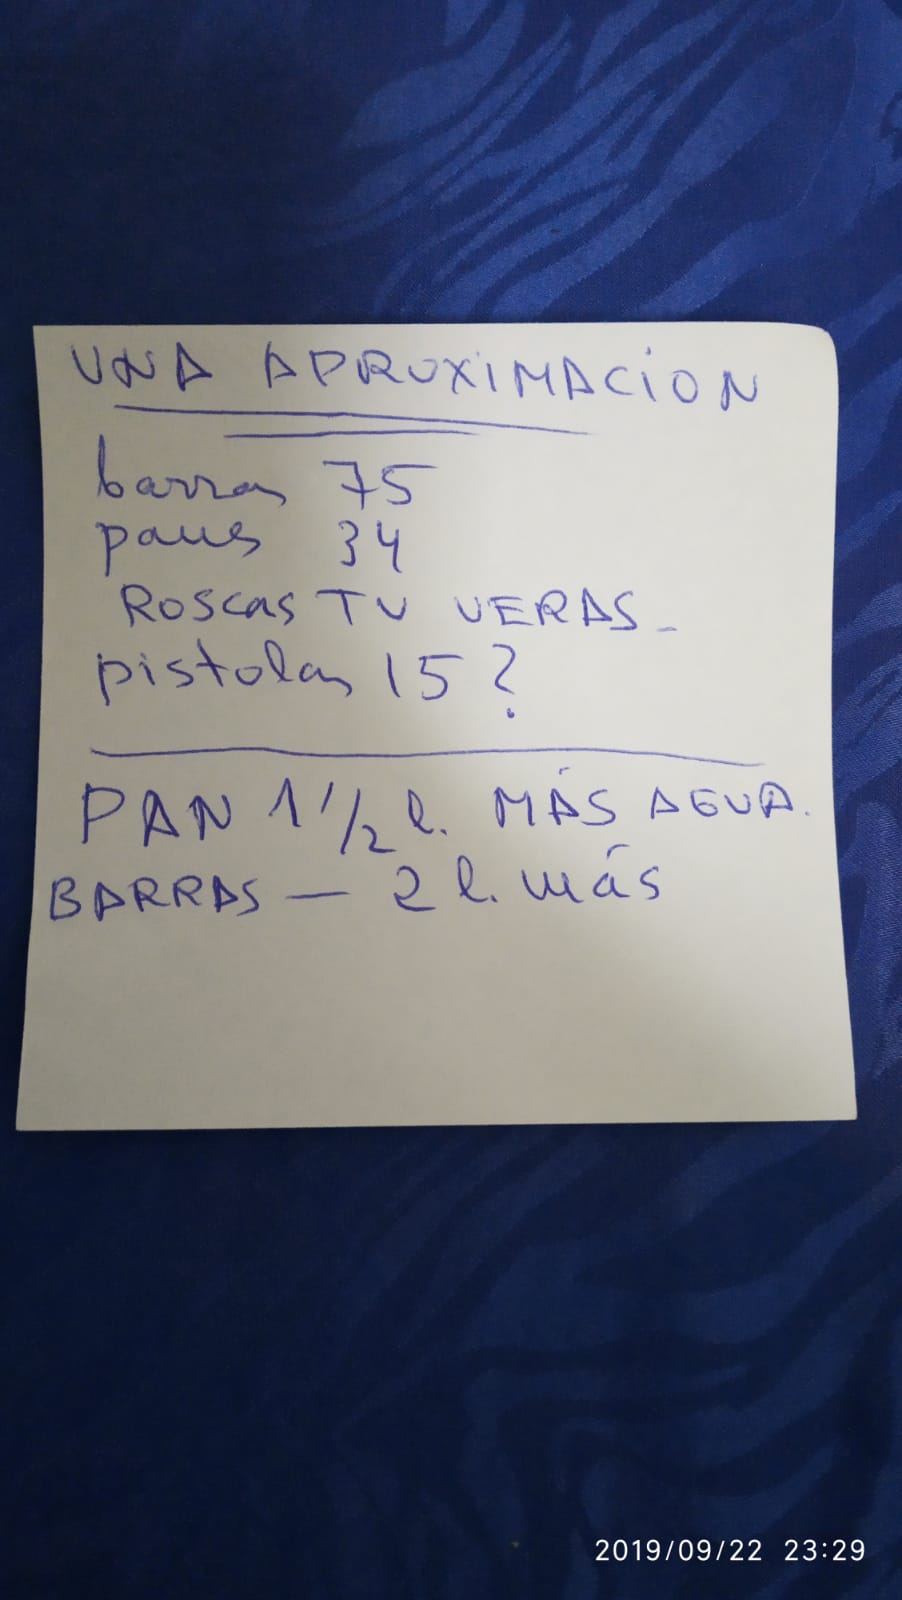 UNA APROXIMACION
barras 75
panes 34
ROSCAS TU VERAS-
pistolas 15?
PAN 1 1/2 l. MÁS AGUA.
BARRAS - 2 l. más
2019/09/22 23:29